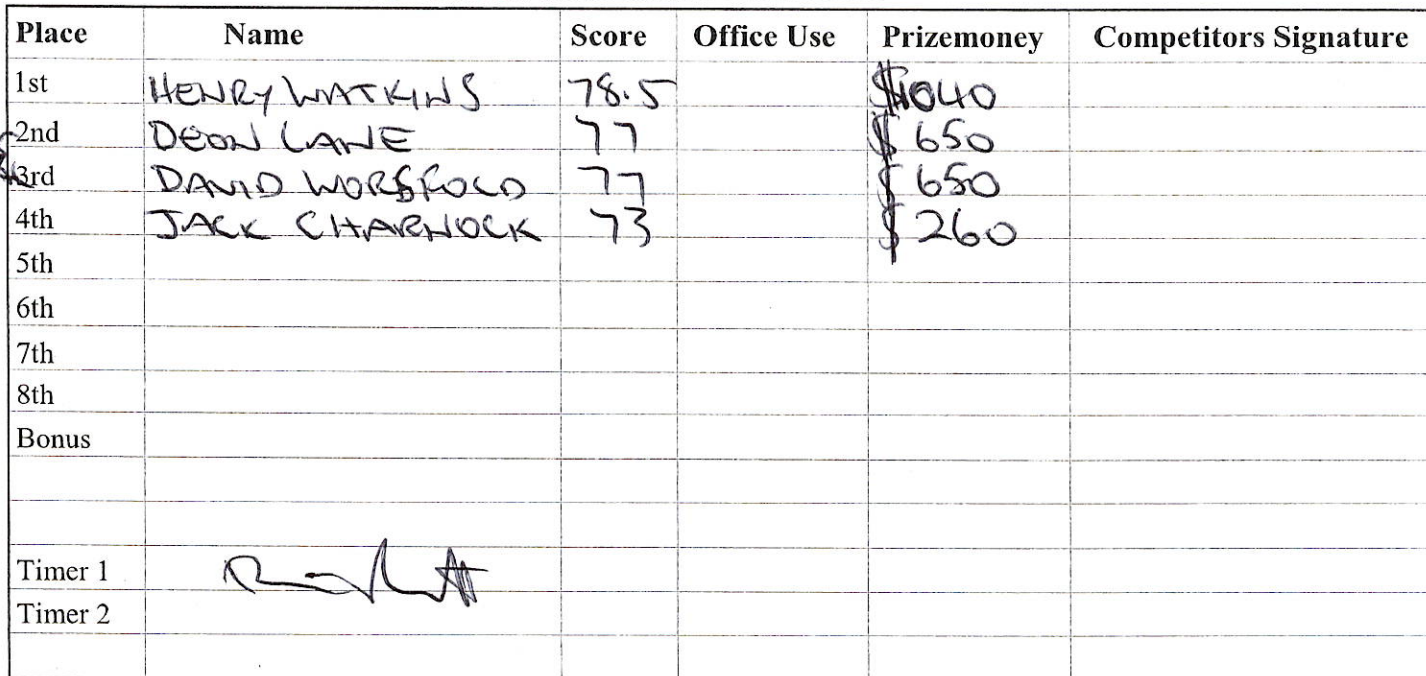 Place Name Score Office Use Prizemoney Competitors Signature
1st HENRY WATKINS 78.5 $1040
2nd DEON LANE 77 $650
3rd DAVID WORSFOLD 77 $650
4th JACK CHARNOCK 73 $260
5th
6th
7th
8th
Bonus
Timer 1
Timer 2